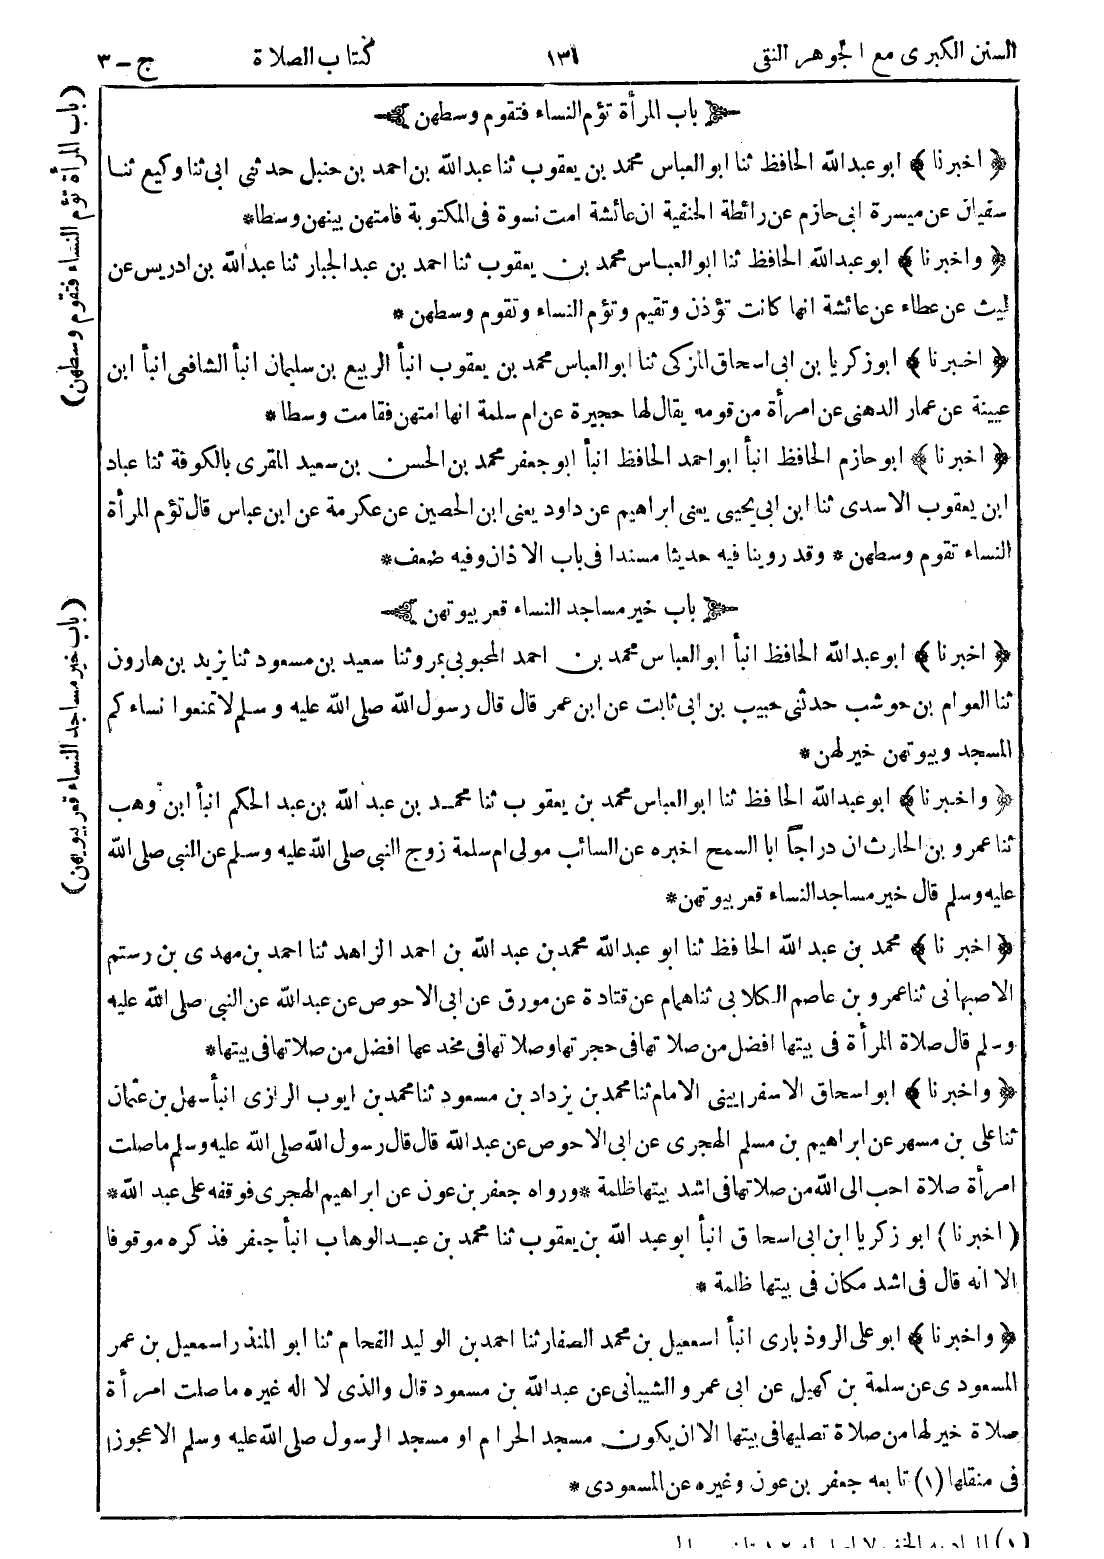 السنن الكبرى مع الجوهر النقى ١٣١ كتاب الصلاة ج - ٣
باب المرأة تؤم النساء فتقوم وسطهن
﴿ اخبرنا ﴾ ابو عبدالله الحافظ ثنا ابو العباس محمد بن يعقوب ثنا عبدالله بن احمد بن حنبل حدثنى ابى ثنا وكيع ثنا
سفيان عن ميسرة ابى حازم عن رائطة الحنفية ان عائشة امت نسوة فى المكتوبة فامتهن بينهن وسطا*
﴿ واخبرنا ﴾ ابو عبدالله الحافظ ثنا ابو العباس محمد بن يعقوب ثنا احمد بن عبدالجبار ثنا عبدالله بن ادريس عن
ليث عن عطاء عن عائشة انها كانت تؤذن وتقيم وتؤم النساء وتقوم وسطهن *
﴿ اخبرنا ﴾ ابوزكريا بن ابى اسحاق المزكى ثنا ابو العباس محمد بن يعقوب انبأ الربيع بن سليمان انبأ الشافعى انبأ ابن
عيينة عن عمار الدهنى عن امرأة من قومه يقال لها حجيرة عن ام سلمة انها امتهن فقامت وسطا*
﴿ اخبرنا ﴾ ابو حازم الحافظ انبأ ابو احمد الحافظ انبأ ابو جعفر محمد بن الحسن بن سعيد المقرى بالكوفة ثنا عباد
ابن يعقوب الاسدى ثنا ابن ابى يحيى يعنى ابراهيم عن داود يعنى ابن الحصين عن عكرمة عن ابن عباس قال تؤم المرأة
النساء تقوم وسطهن * وقد روينا فيه حديثا مسندا فى باب الاذان وفيه ضعف*
باب خير مساجد النساء قعر بيوتهن
﴿ اخبرنا ﴾ ابو عبدالله الحافظ انبأ ابو العباس محمد بن احمد المحبوبى بمرو ثنا سعيد بن مسعود ثنا يزيد بن هارون
ثنا العوام بن حوشب حدثنى حبيب بن ابى ثابت عن ابن عمر قال قال رسول الله صلى الله عليه وسلم لا تمنعوا نساءكم
المسجد وبيوتهن خير لهن*
﴿ واخبرنا ﴾ ابو عبدالله الحافظ ثنا ابو العباس محمد بن يعقوب ثنا محمد بن عبدالله بن عبد الحكم انبأ ابن وهب
ثنا عمرو بن الحارث ان دراجاً ابا السمح اخبره عن السائب مولى ام سلمة زوج النبى صلى الله عليه وسلم عن النبى صلى الله
عليه وسلم قال خير مساجد النساء قعر بيوتهن*
﴿ اخبرنا ﴾ محمد بن عبد الله الحافظ ثنا ابو عبدالله محمد بن عبدالله بن احمد الزاهد ثنا احمد بن مهدى بن رستم
الاصبهانى ثنا عمرو بن عاصم الكلابى ثنا همام عن قتادة عن مورق عن ابى الاحوص عن عبدالله عن النبى صلى الله عليه
وسلم قال صلاة المرأة فى بيتها افضل من صلاتها فى حجرتها وصلاتها فى مخدعها افضل من صلاتها فى بيتها*
﴿ واخبرنا ﴾ ابو اسحاق الاسفرايينى الامام ثنا محمد بن يزداد بن مسعود ثنا محمد بن ايوب الرازى انبأ سهل بن عثمان
ثنا على بن مسهر عن ابراهيم بن مسلم الهجرى عن ابى الاحوص عن عبدالله قال قال رسول الله صلى الله عليه وسلم ما صلت
امرأة صلاة احب الى الله من صلاتها فى اشد بيتها ظلمة *ورواه جعفر بن عون عن ابراهيم الهجرى فوقفه على عبد الله*
(اخبرنا) ابو زكريا ابن ابى اسحاق انبأ ابو عبد الله بن يعقوب ثنا محمد بن عبدالوهاب انبأ جعفر فذكره موقوفا
الا انه قال فى اشد مكان فى بيتها ظلمة *
﴿ واخبرنا ﴾ ابو على الروذبارى انبأ اسمعيل بن محمد الصفار ثنا احمد بن الوليد الفحام ثنا ابو المنذر اسمعيل بن عمر
المسعودى عن سلمة بن كهيل عن ابى عمرو الشيبانى عن عبدالله بن مسعود قال والذى لا اله غيره ما صلت امرأة
صلاة خير لها من صلاة تصليها فى بيتها الا ان يكون مسجد الحرام او مسجد الرسول صلى الله عليه وسلم الا عجوزا
فى منقلها (١) تابعه جعفر بن عون وغيره عن المسعودى *
(باب المرأة تؤم النساء فتقوم وسطهن)
(باب خير مساجد النساء قعر بيوتهن)